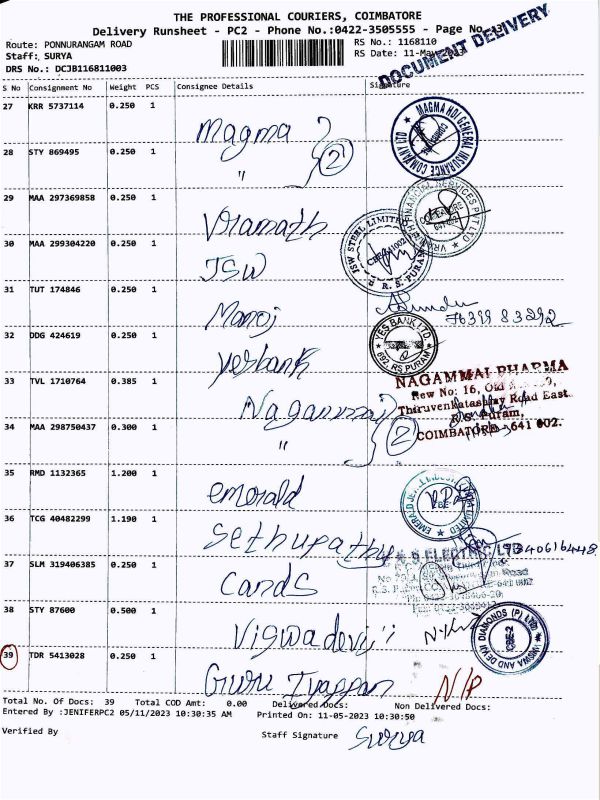 THE PROFESSIONAL COURIERS, COIMBATORE
Delivery Runsheet - PC2 - Phone No.:0422-3505555 - Page No.
Route: PONNURANGAM ROAD
RS No.: 1168110
Staff: SURYA
RS Date: 11-May-2023
DRS No.: DCJB116811003
DOCUMENT DELIVERY
S No Consignment No Weight PCS Consignee Details Signature
27 KRR 5737114 0.250 1 Magma
MAGMA HDI GENERAL INSURANCE COMPANY LTD
28 STY 869495 0.250 1 " 2
29 MAA 297369858 0.250 1 Viramath
FINANCIAL SERVICES PVT LTD
30 MAA 299304220 0.250 1 JSW
JSW STEEL LIMITED
R. S. PURAM
31 TUT 174846 0.250 1 Manoj
32 DDG 424619 0.250 1 yesbank
YES BANK LTD.
692, RS PURAM
33 TVL 1710764 0.385 1 Nagammai
NAGAMMAI PHARMA
New No: 16, Old
Thiruvenkatasamy Road East,
R.S. Puram,
COIMBATORE - 641 002.
34 MAA 298750437 0.300 1 " 2
35 RMD 1132365 1.200 1 emerald
36 TCG 40482299 1.190 1 Sethupathy
37 SLM 319406385 0.250 1 Cards
38 STY 87600 0.500 1 Viswadevji
VISWA AND DEVJI DIAMONDS (P) LTD
39 TDR 5413028 0.250 1 Guru Iyappan N/P
Total No. Of Docs: 39 Total COD Amt: 0.00 Delivered Docs: Non Delivered Docs:
Entered By :JENIFERPC2 05/11/2023 10:30:35 AM Printed On: 11-05-2023 10:30:50
Verified By Staff Signature Surya